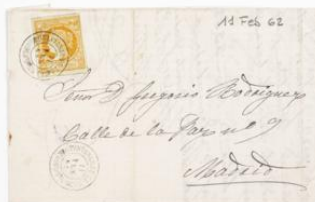 11 Feb 62
Señor D Gregorio Rodriguez
Calle de la Paz nº 9
Madrid